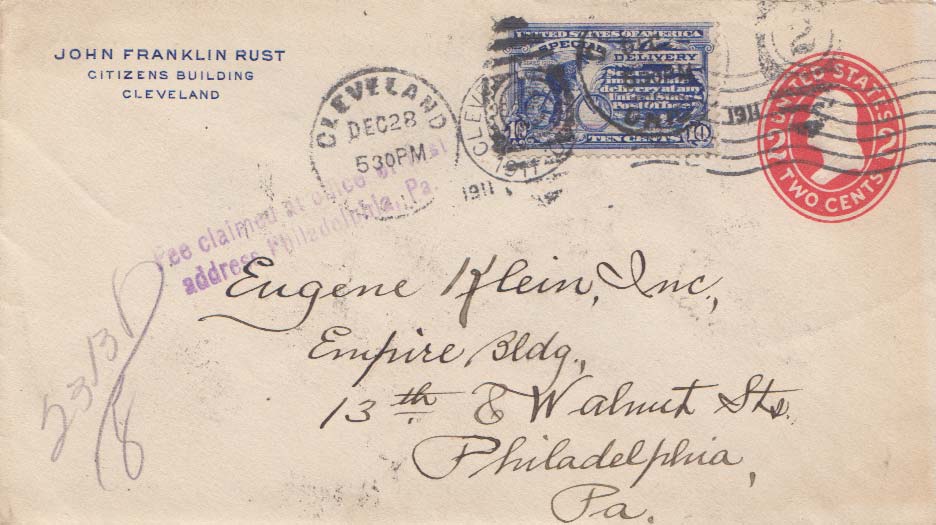 JOHN FRANKLIN RUST
CITIZENS BUILDING
CLEVELAND
CLEVELAND
DEC 28
530 PM
CLEV
1911
1911
UNITED STATES OF AMERICA
SPECIAL DELIVERY
10
TEN CENTS
10
2
REC
UNITED STATES
2 2
TWO CENTS
Fee claimed at office of first
address Philadelphia, Pa.
Eugene Klein, Inc.,
Empire Bldg.,
13th & Walnut Sts.
Philadelphia,
Pa.